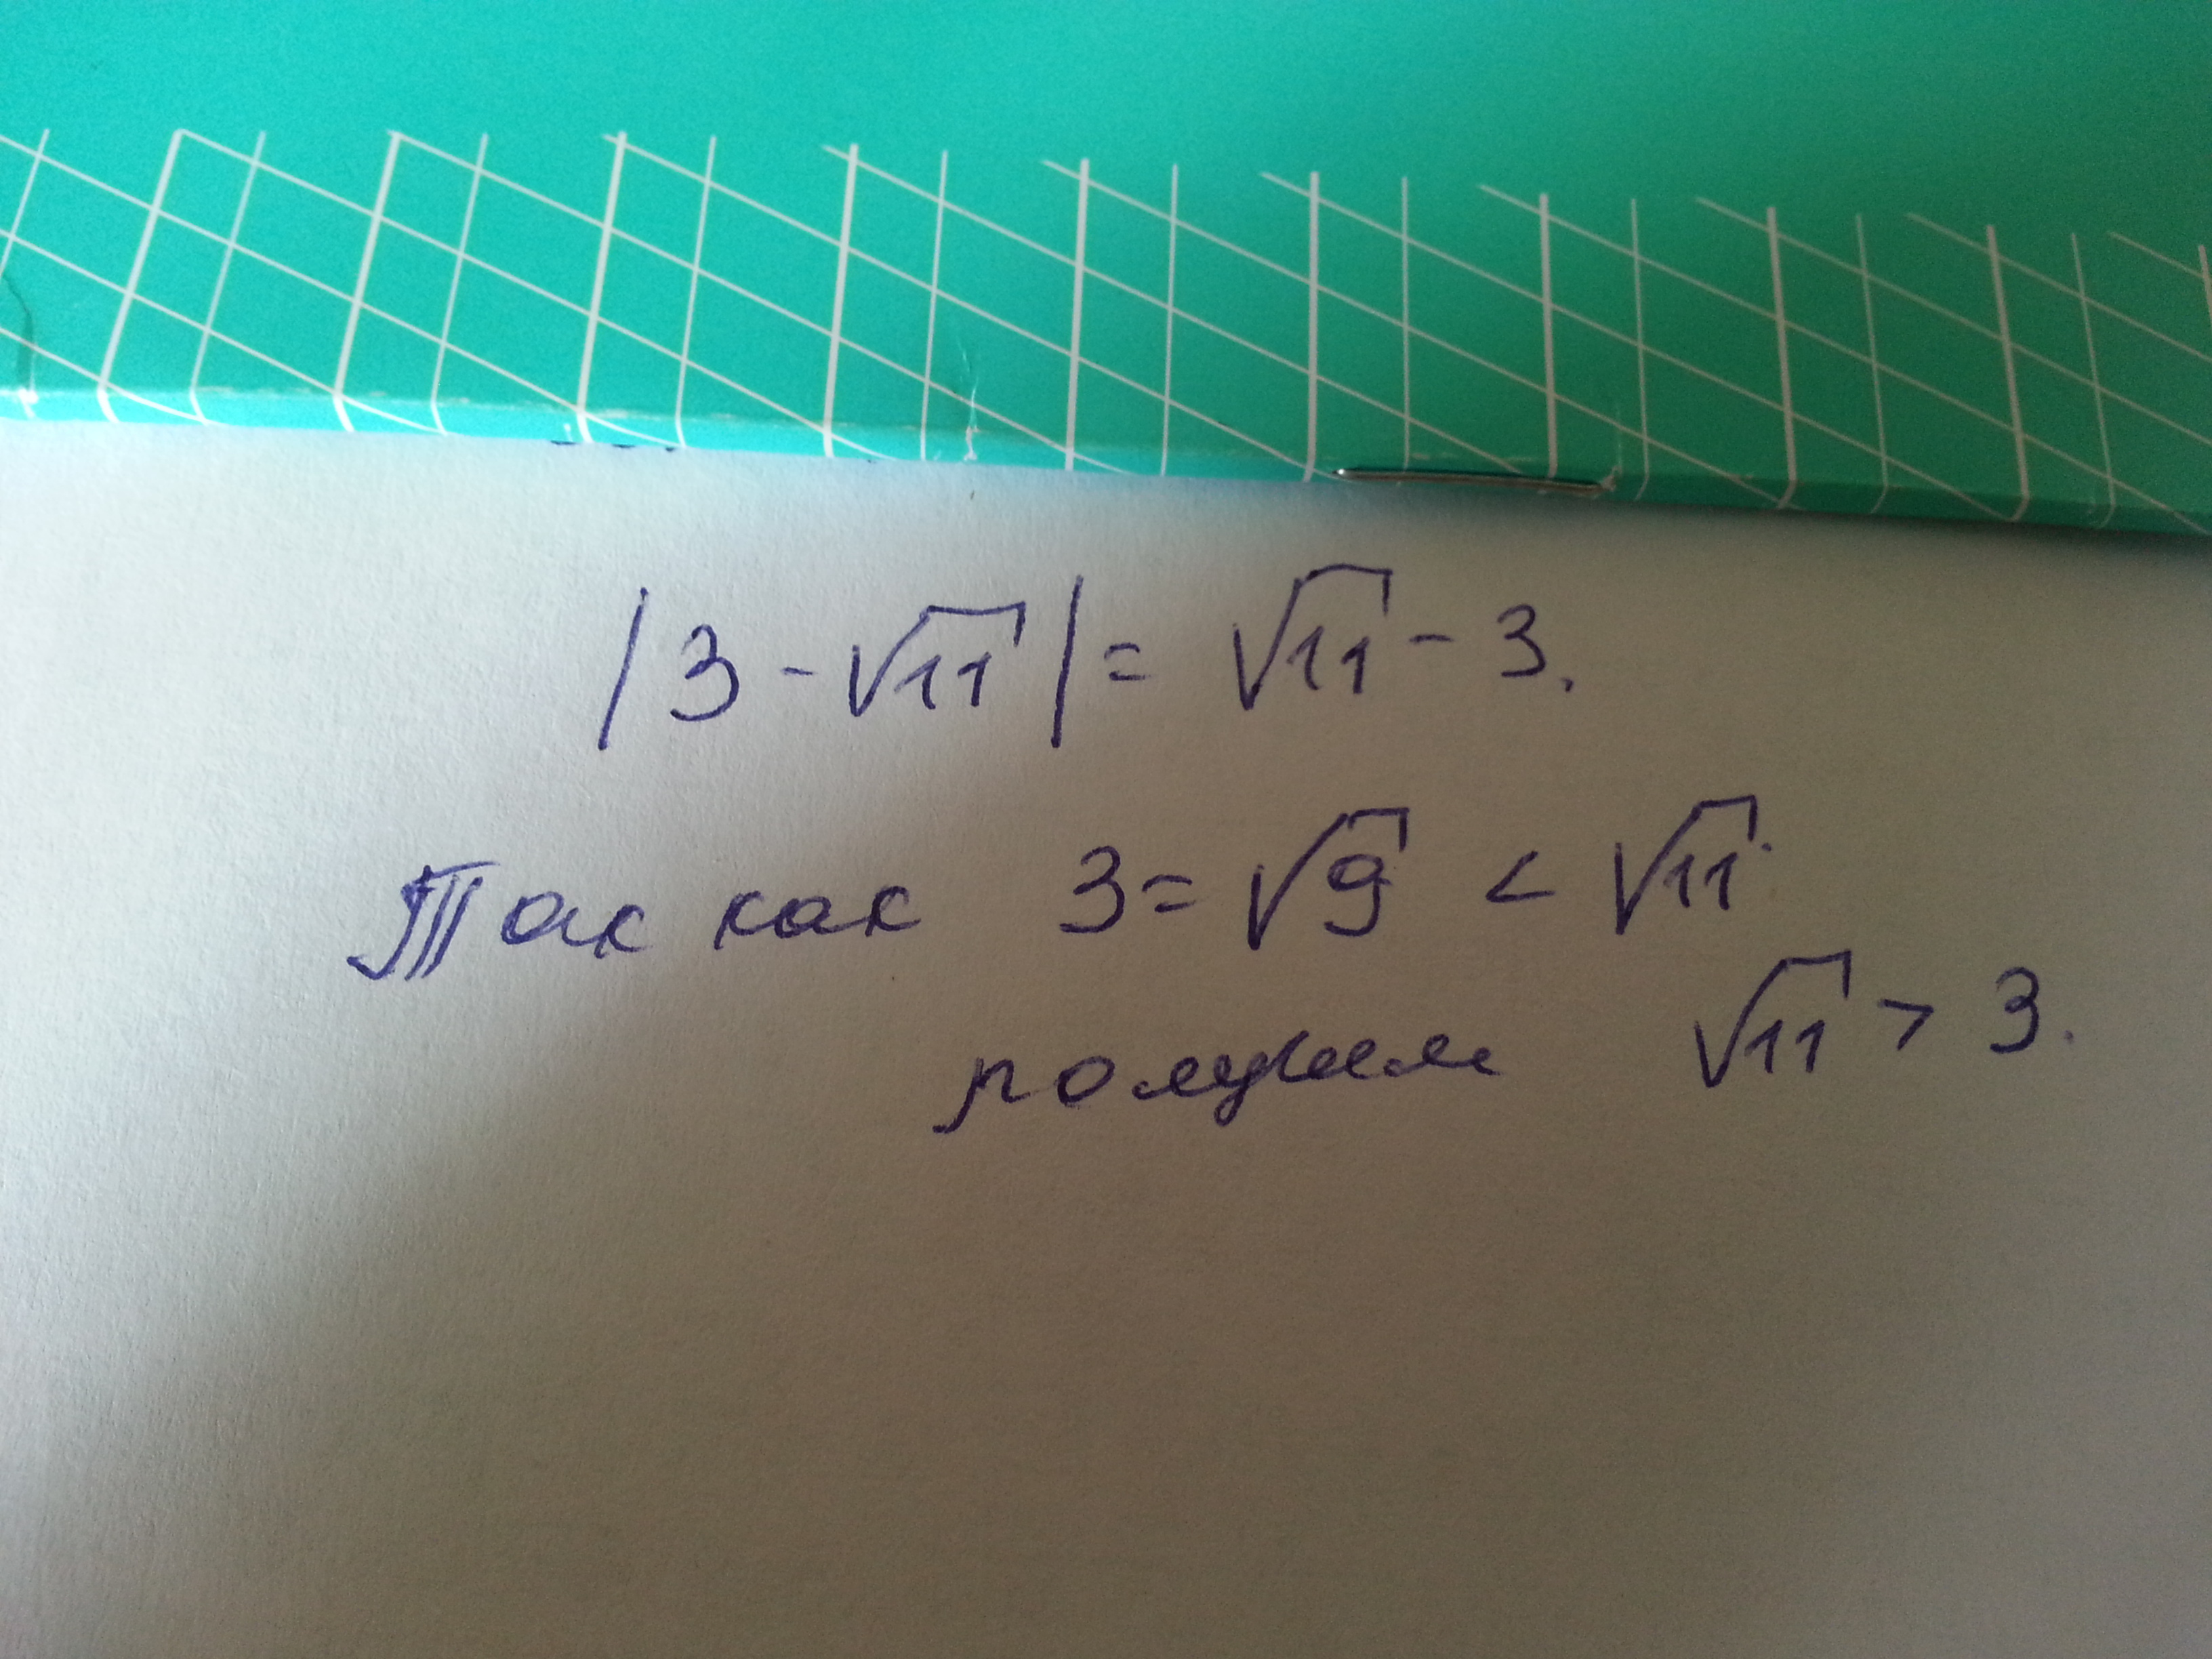 |3 - √11| = √11 - 3.
Так как 3 = √9 < √11.
получим √11 > 3.